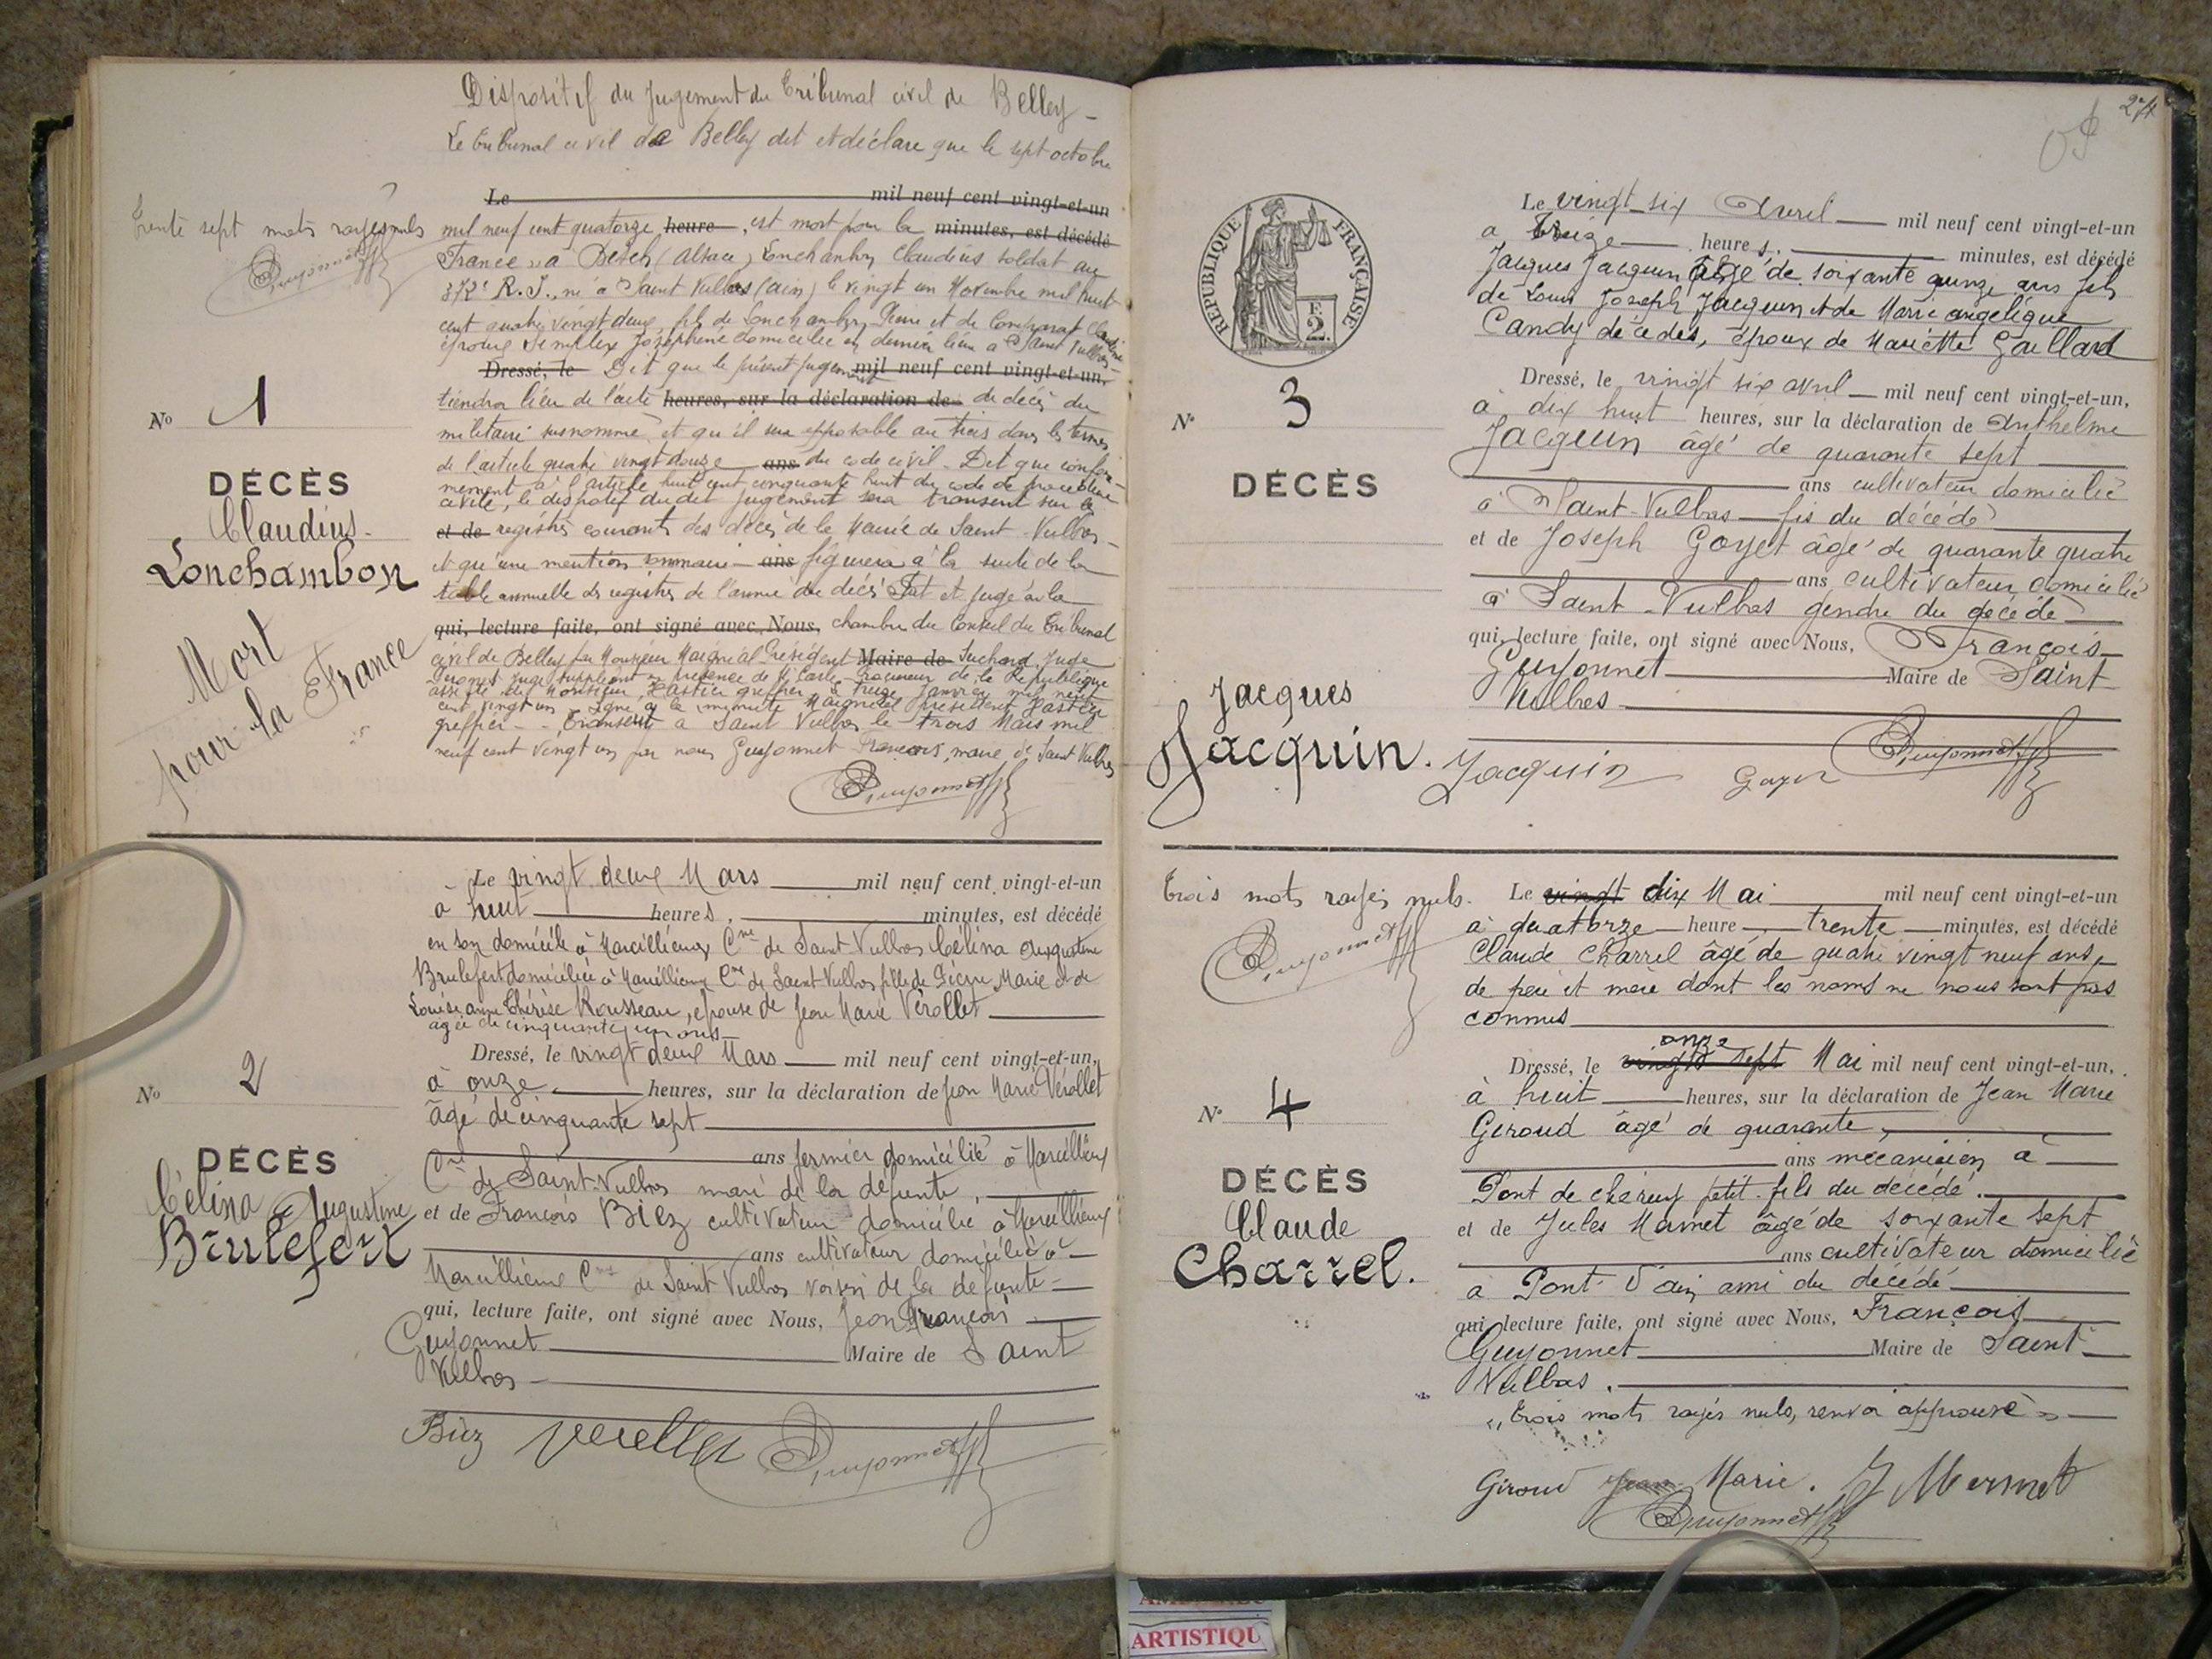 Dispositif du Jugement du Tribunal civil de Belley -
Le tribunal civil de Belley dit et déclare que le sept octobre
Le mil neuf cent vingt-et-un
Trente sept mots rayés nuls
mil neuf cent quatorze heure, est mort pour la minutes, est décédé
France, à (Alsace) Lonchambon Claudius soldat au
372e R. I., né à Saint Vulbas (ain) le vingt un Novembre mil huit
cent quatre vingt deux, fils de Lonchambon Pierre et de
époux Simplex Joséphine domicilié en dernier lieu à Saint Vulbas
Dressé, le Dit que le présent jugement mil neuf cent vingt-et-un,
tiendra lieu de l'acte heures, sur la déclaration de de décès du
No 1
militaire susnommé, et qu'il sera opposable au tiers dans les termes
de l'article quatre vingt douze ans du code civil. Dit que confor-
DÉCÈS
mément à l'article huit cent cinquante huit du code de procédure
civile, le dispotif dudit jugement sera transcrit sur les
Claudius
et de registres courants des décès de la Mairie de Saint-Vulbas
Lonchambon
et qu'une mention sommaire ans figurera à la suite de la
table annuelle des registres de l'année du décès Fait et jugé en la
Mort
pour la France
qui, lecture faite, ont signé avec Nous, chambre du Conseil du Tribunal
civil de Belley par Monsieur Maignial Président Maire de Suchard, Juge
Juge suppléant en présence de M. Procureur de la République
assisté de Monsieur Hastier greffier le treize Janvier mil neuf
cent vingt un signé à la minute Maigniel président Hastier
greffier - Transcrit à Saint Vulbas le trois Mars mil
neuf cent vingt un par nous Guyonnet François, maire de Saint Vulbas
Guyonnet
Le vingt deux Mars mil neuf cent vingt-et-un
à huit heures, minutes, est décédé
en son domicile à Marcillieux Cne de Saint-Vulbas Célina Augustine
Brulefert domiciliée à Marcillieux Cne de Saint-Vulbas fille de Pierre Marie et de
Louise anne Thérèse Rousseau, épouse de Jean Marie Vérollet
agée de cinquante un ans
Dressé, le vingt deux Mars mil neuf cent vingt-et-un,
No 2
à onze heures, sur la déclaration de Jean Marie Vérollet
âgé de cinquante sept
DÉCÈS
ans fermier domicilié à Marcillieux
Cne de Saint-Vulbas mari de la défunte,
Célina Augustine
Brulefert
et de François Biez cultivateur domicilié à Marcillieux
ans cultivateur domicilié à
Marcillieux Cne de Saint Vulbas voisin de la défunte
qui, lecture faite, ont signé avec Nous, Jean François
Guyonnet Maire de Saint
Vulbas
Biez Verollet Guyonnet
274
RÉPUBLIQUE FRANÇAISE
F.
2.
Le vingt-six Avril mil neuf cent vingt-et-un
à treize heures, minutes, est décédé
Jacques Jacquin âgé de soixante quinze ans fils
de Louis Joseph Jacquin et de Marie angélique
Candy décédés, époux de Mariette Gaillard
Dressé, le vingt six avril mil neuf cent vingt-et-un,
No 3
à dix huit heures, sur la déclaration de Anthelme
Jacquin âgé de quarante sept
DÉCÈS
ans cultivateur domicilié
à Saint-Vulbas fis du décédé
et de Joseph Goyet âgé de quarante quatre
ans cultivateur domicilié
à Saint-Vulbas gendre du décédé
qui, lecture faite, ont signé avec Nous, François
Guyonnet Maire de Saint
Vulbas
Jacques
Jacquin.
Jacquin Goyet Guyonnet
Trois mots rayés nuls.
Guyonnet
Le vingt dix Mai mil neuf cent vingt-et-un
à quatorze heure trente minutes, est décédé
Claude Charrel âgé de quatre vingt neuf ans,
de père et mère dont les noms ne nous sont pas
connus
onze
Dressé, le vingt sept Mai mil neuf cent vingt-et-un,
No 4
à huit heures, sur la déclaration de Jean Marie
Giroud âgé de quarante,
ans mécanicien à
DÉCÈS
Pont de chéruy petit-fils du décédé.
Claude
Charrel.
et de Jules Mamet âgé de soixante sept
ans cultivateur domicilié
à Pont d'ain ami du décédé
qui, lecture faite, ont signé avec Nous, François
Guyonnet Maire de Saint
Vulbas.
"Trois mots rayés nuls, renvoi approuvé"
Giroud Jean Marie. J Mermet
Guyonnet
ARTISTIQU